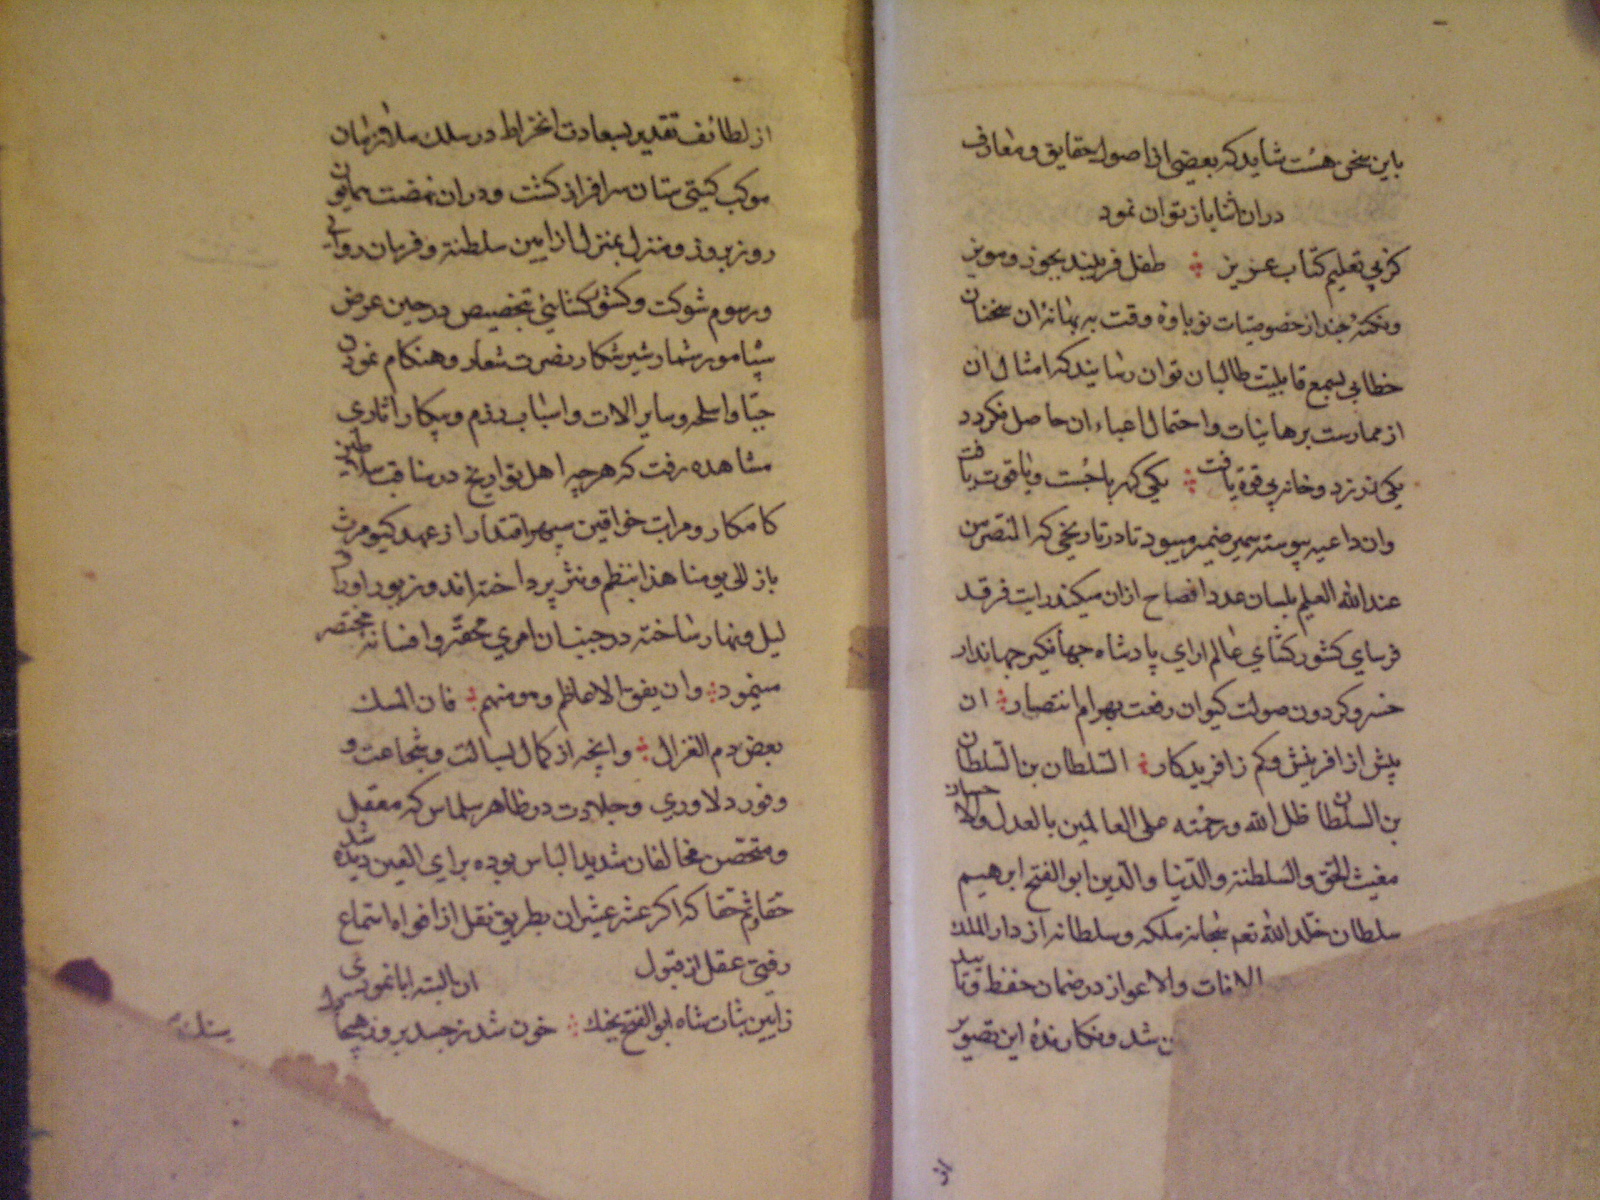 باین سخن هست شاید که بعضی از اصول حقایق و معارف
دران اثنا باز توان نمود
کز پی تعلیم کتاب عزیز طفل فریبند بجوز و مویز
ونکته چند از خصوصیات نوباوه وقت به بهانه ان سخنان
خطابی بسمع قابلیت طالبان توان رسانید که امثال ان
از ممارست برهانیات و احتمال اعباء ان حاصل نکردد
یکی در نزد و خانه پی قوة یافت یکی کهربا جست و یاقوت یافت
وان داعیه پیوسته سمیر ضمیر میبود تا در تاریخی که النصر من
عند الله العلیم بلسان عدد افصاح ازان میکند رایت فرقد
فرسای کشور کشای عالم ارای پادشاه جهانگیر جهاندار
خسرو کردون صولت کیوان رفعت بهرام انتصار ان
پیش از افرینش وکم زافریدکار السلطان بن السلطان
بن السلطان ظل الله ورحمته على العالمین بالعدل والاحسان
مغیث الحق والسلطنة والدنیا والدین ابو الفتح ابرهیم
سلطان خلد الله تعم سبحانه ملکه وسلطانه از دار الملک
الافات والاعواز در ضمان حفظ وتایید
شد ونکارنده این تصویر
از لطائف تقدیر بسعادت انخراط در سلک ملازمان
موکب کیتی ستان سرافراز کشت ودران نهضت همایون
روز بروز ومنزل بمنزل از ایین سلطنة وفرمان روایی
ورسوم شوکت وکشور کشایی بتخصیص در حین عرض
سپاه مور شمار شیر شکار نصرت شعار وهنکام نمودن
جبا واسلحه وسایر الات واسباب رزم وپیکار اثاری
مشاهده رفت که هرچه اهل تواریخ در مناقب سلاطین
کامکار ومراتب خواقین سپهر اقتدار از عهد کیومرث
باز الی یومنا هذا بنظم ونثر پرداخته اند وزیور اوراد
لیل ونهار ساخته در جنب ان امری محقر وافسانه مختصر
مینمود وان یفق الاعاظم وهو منهم فان المسک
بعض دم الغزال وانچه از کمال بسالت وشجاعت و
وفور دلاوری وجلادت در ظاهر سلماس که معقل
ومتحصن مخالفان شدید الباس بوده برای العین دیده شد
حقا وثم حقا که اکر عشر عشیر ان بطریق نقل از افواه استماع
رفتی عقل از قبول ان البته ابا نمودی
زایین ثبات شاه ابو الفتح بجنک خون شد ز حسد برون هیجا